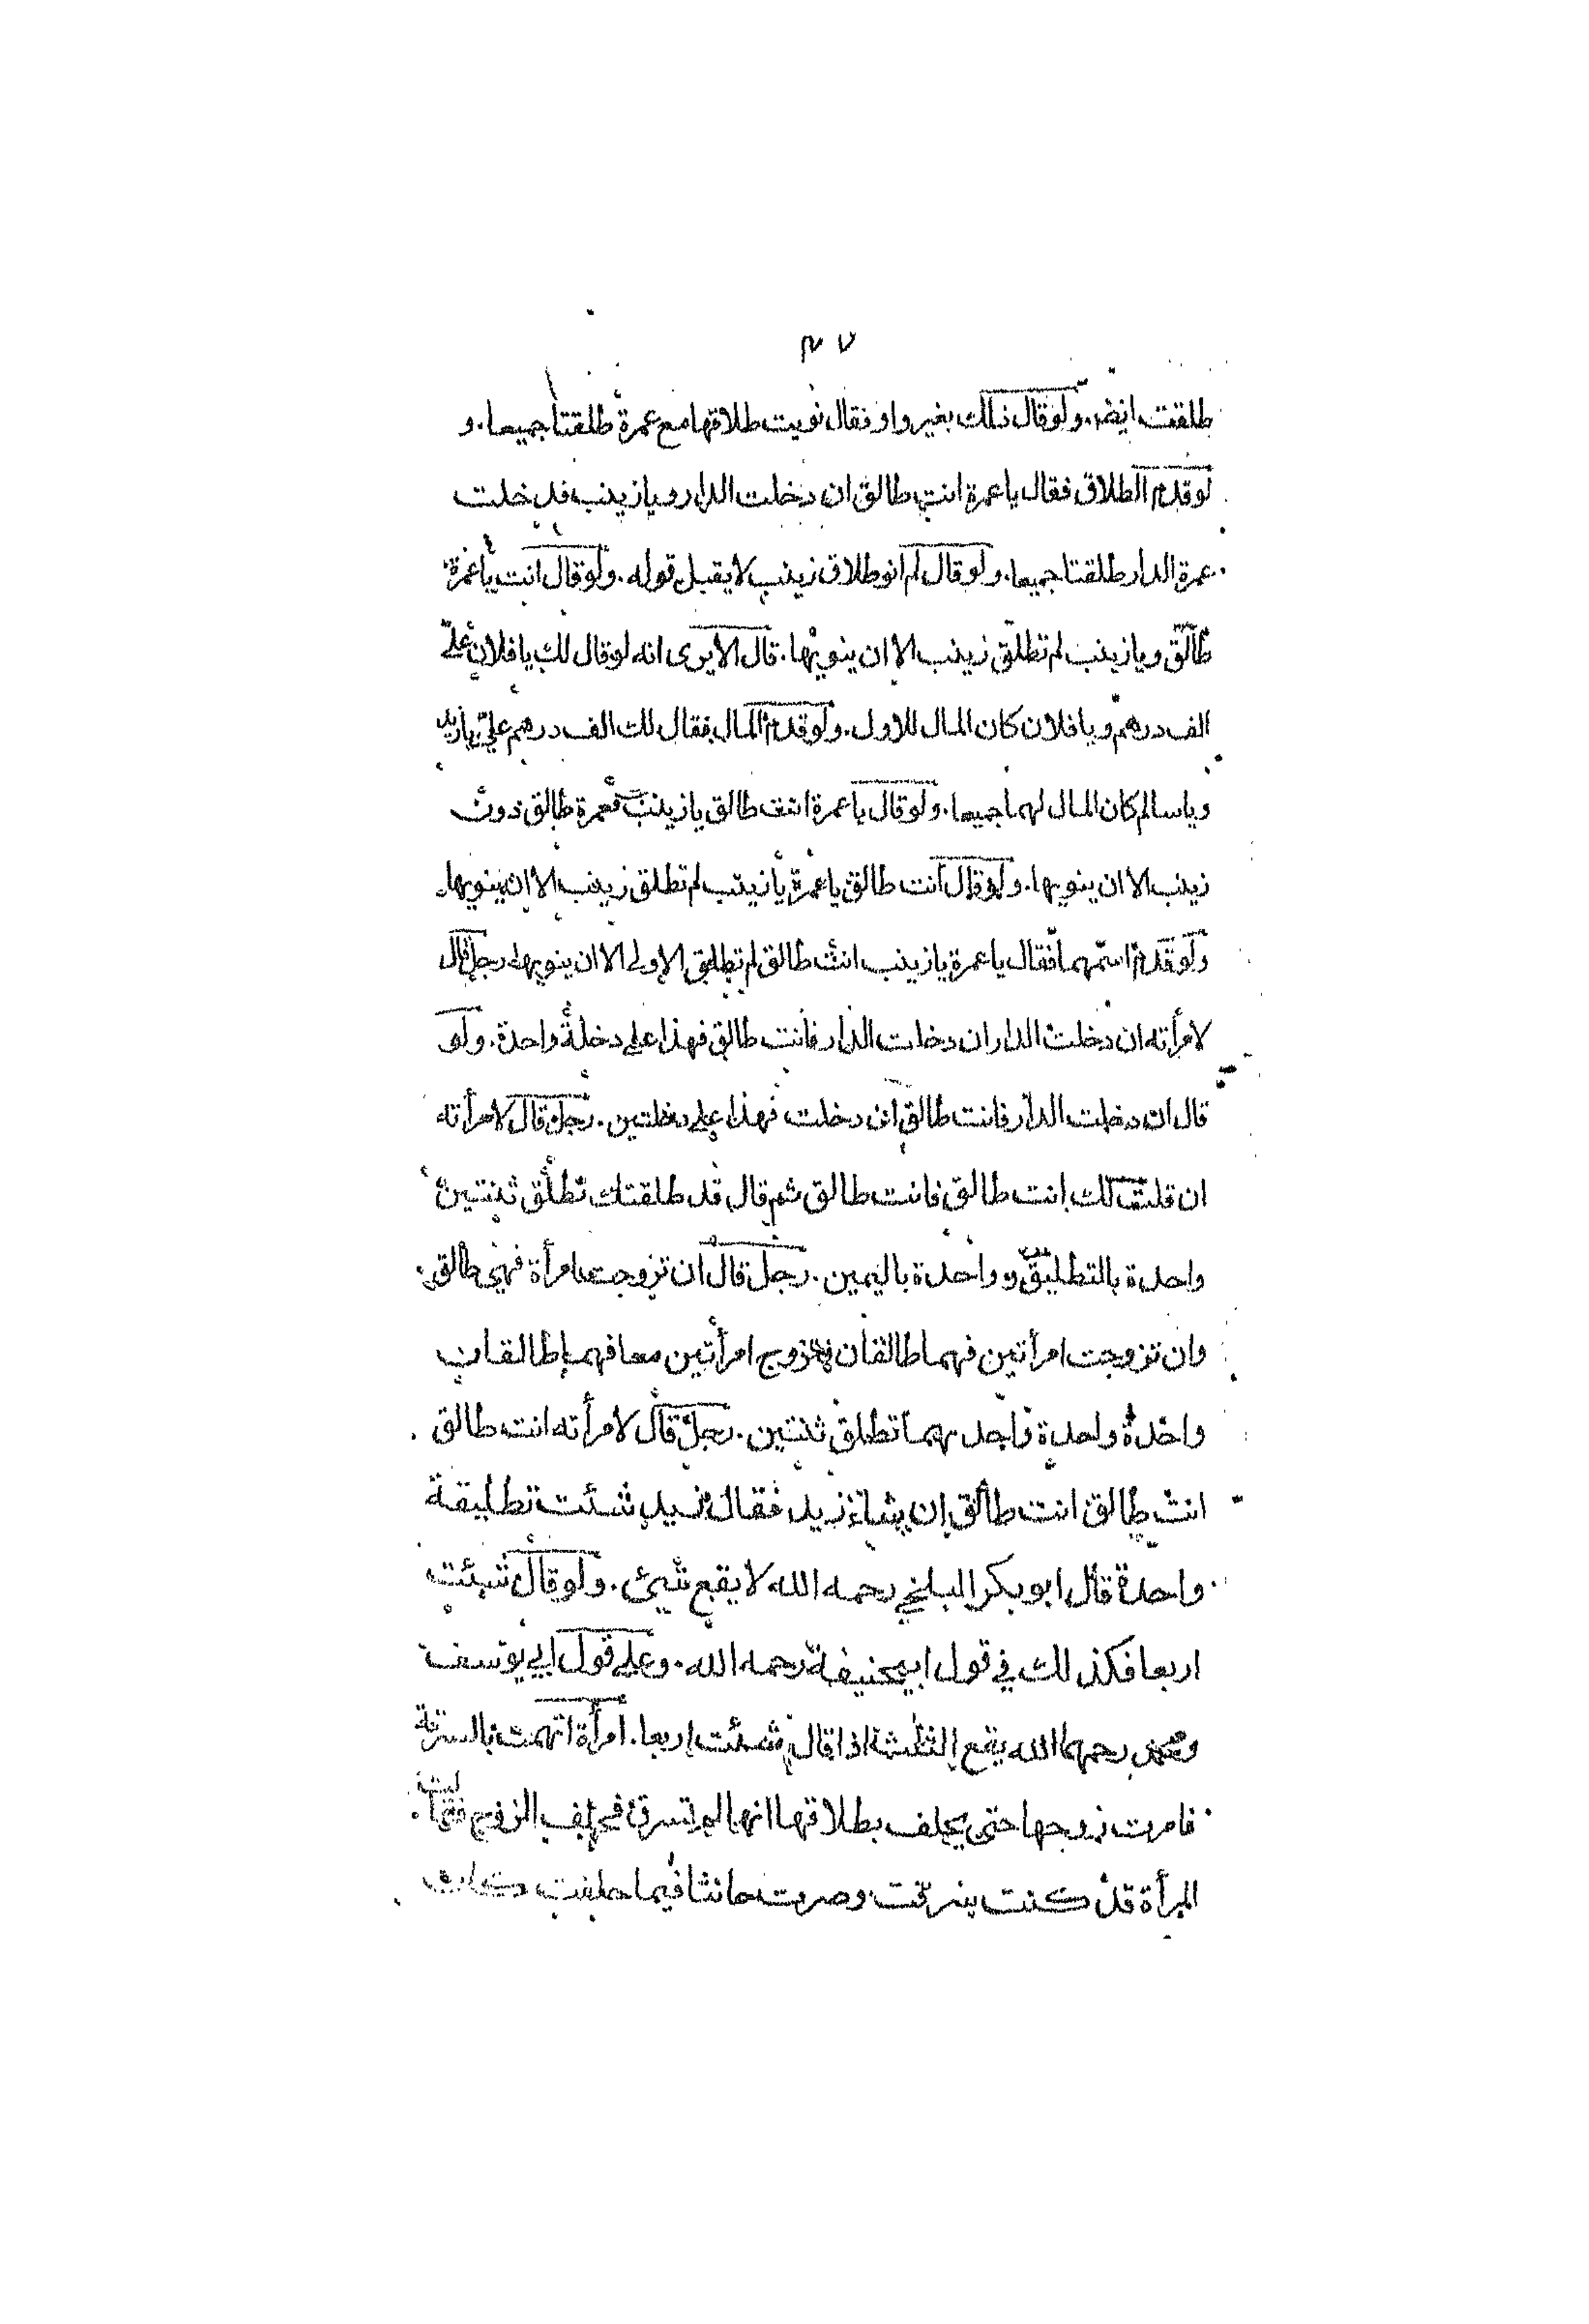 ٤٧
طلقت ايضا. ولو قال ذلك بغير واو فقال نويت طلاقها مع عمرة طلقتا جميعا. و
لو قدم الطلاق فقال يا عمرة انت طالق ان دخلت الدار ويا زينب فدخلت
عمرة الدار طلقتا جميعا. ولو قال لم انو طلاق زينب لا يقبل قوله. ولو قال انت يا عمرة
طالق ويا زينب لم تطلق زينب الا ان ينويها. قال الا يرى انه لو قال لك يا فلان علي
الف درهم ويا فلان كان المال للاول. ولو قدم المال فقال لك الف درهم علي يا زيد
ويا سالم كان المال لهما جميعا. ولو قال يا عمرة انت طالق يا زينب فعمرة طالق دون
زينب الا ان ينويها. ولو قال انت طالق يا عمرة يا زينب لم تطلق زينب الا ان ينويها
ولو قدم اسمهما فقال يا عمرة يا زينب انت طالق لم تطلق الاولى الا ان ينويها. رجل قال
لامرأته ان دخلت الدار ان دخلت الدار فانت طالق فهذا على دخلة واحدة. ولو
قال ان دخلت الدار فانت طالق ان دخلت فهذا على دخلتين. رجل قال لامرأته
ان قلت لك انت طالق فانت طالق ثم قال قد طلقتك تطلق ثنتين
واحدة بالتطليق وواحدة باليمين. رجل قال ان تزوجت امرأة فهي طالق
وان تزوجت امرأتين فهما طالقان فتزوج امرأتين معا فهما طالقان
واحدة واحدة واحد بهما تطلق ثنتين. رجل قال لامرأته انت طالق
انت طالق انت طالق ان شاء زيد فقال زيد شئت تطليقة
واحدة قال ابو بكر البلخي رحمه الله لا يقع شيئ. ولو قال شئت
اربعا فكذلك في قول ابيحنيفة رحمه الله. وعلى قول ابي يوسف
ومحمد رحمهما الله يقع الثلثة اذا قال شئت اربعا. امرأة اتهمت بالسرقة
فامرت زوجها حتى يحلف بطلاقها انها لم تسرق فحلف الزوج فقالت
المرأة قد كنت سرقت وصرت حانثا فيما حلفت كان